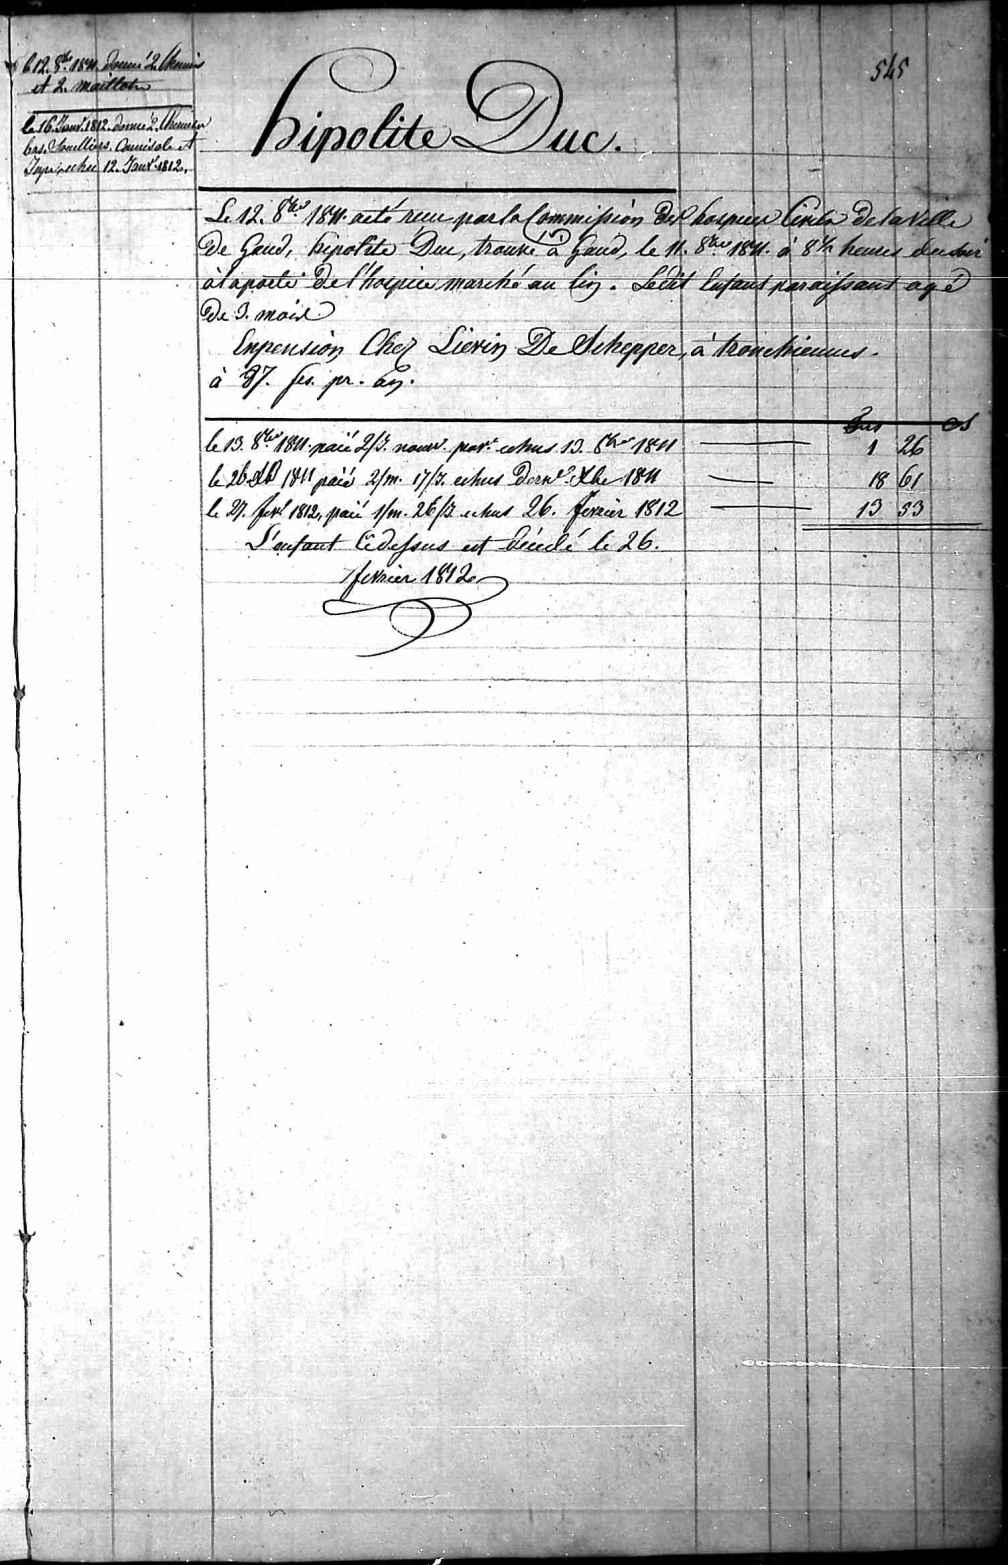 545
le 12. 8bre 1811. donné 2. Chemises
et 2. maillots
le 16. Janvr 1812. donné 2. Chemises
bas. Souilliers. Camisole et
Jupe echu 12. Janvr 1812.
hipolite Duc.
Le 12. 8bre 1811. a eté recu par la Commission des hospices Civils de la Ville
de Gand, hipolite Duc, trouvé à Gand, le 11. 8bre 1811. à 8 1/2 heures du soir
à la porte de l'hospice marché au lin. Ledit Enfant paraissant agé
de 3. mois
En pension Chez Lievin De Schepper, à tronchiennes.
à 87. fcs. pr. an.
fcs cs
le 13. 8bre 1811. paié 2/J. nourr. par. echus 13. 8bre 1811 1 26
le 26 Xb 1811 paié 2/m. 17/J. echus dernr Xbre 1811 18 61
le 27. fevr 1812, paié 1/m. 26/J echus 26. fevrier 1812 13 53
L'enfant Cidessus est décédé le 26.
fevrier 1812